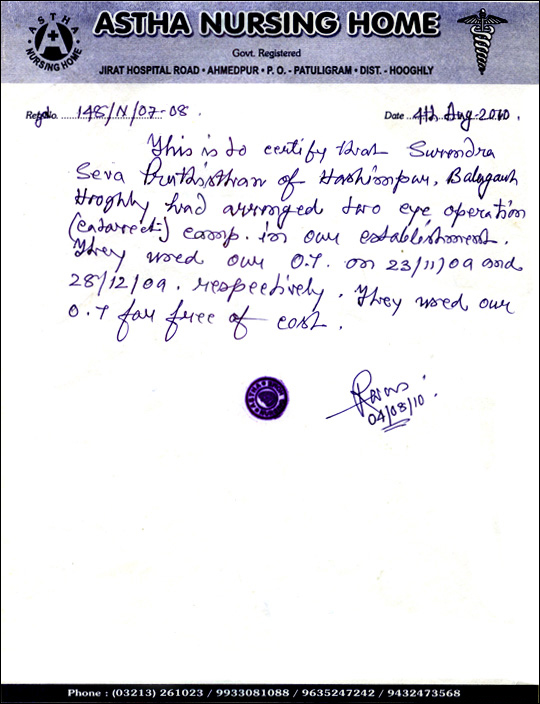 ASTHA NURSING HOME
ASTHA
NURSING HOME
Govt. Registered
JIRAT HOSPITAL ROAD • AHMEDPUR • P. O. - PATULIGRAM • DIST. - HOOGHLY
Regd No. 148/N/07-08. Date 4th Aug-2010.
This is to certify that Surendra
Seva Prathisthan of Hashimpur, Balagarh
Hooghly had arranged two eye operation
(cataract) camp. in our establishment.
They used our O.T. on 23/11/09 and
28/12/09. respectively. They used our
O.T for free of cost.
04/08/10
Phone : (03213) 261023 / 9933081088 / 9635247242 / 9432473568